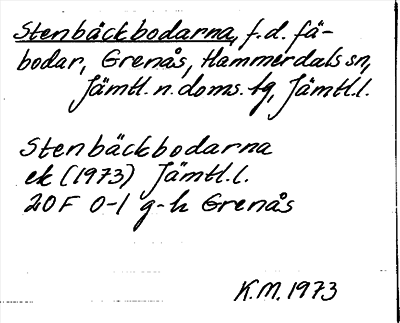 Stenbäckbodarna, f.d. fä-
bodar, Grenås, Hammerdals sn,
Jämtl. n. doms. tg, Jämtl.l.
Stenbäckbodarna
ek (1973) Jämtl.l.
20F 0-1 g-h Grenås
K.M. 1973